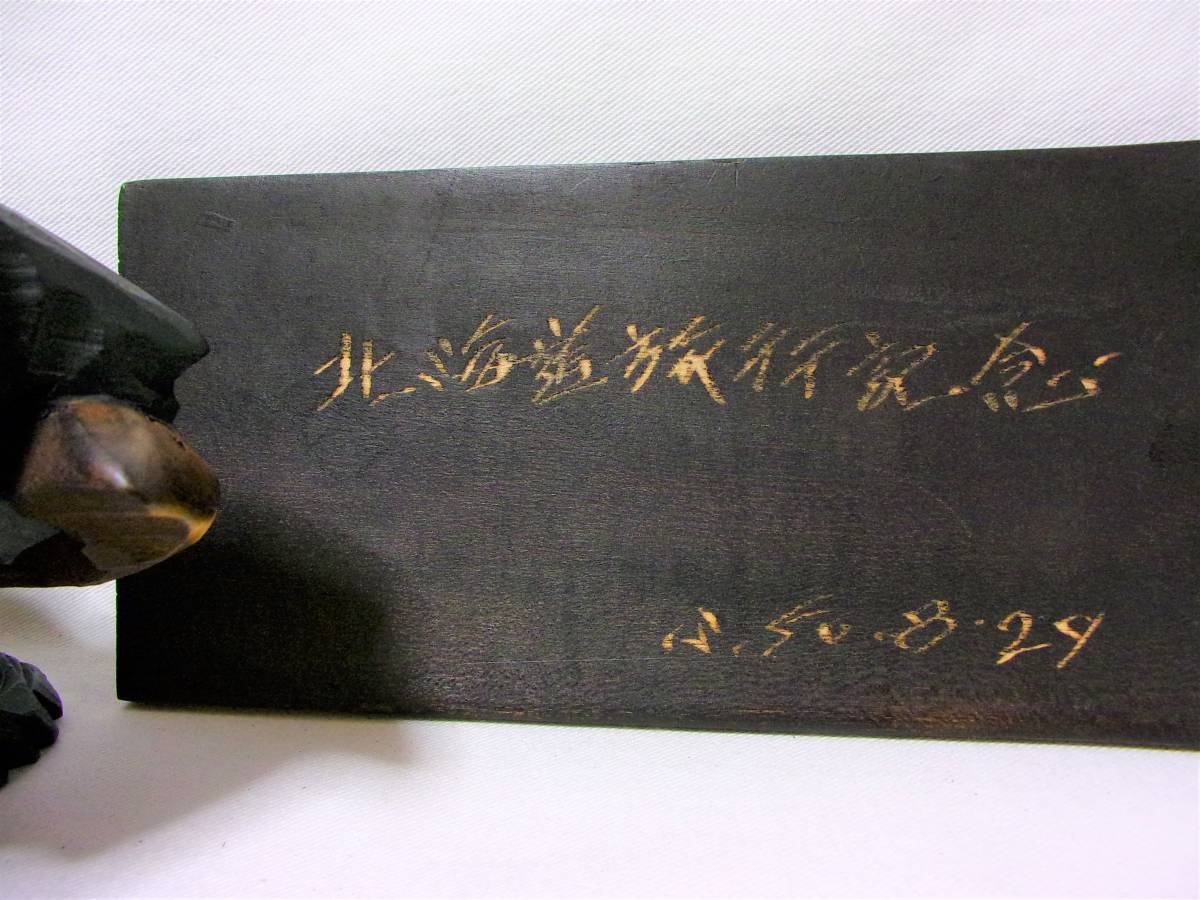 北海道旅行記念
S.50.8.29